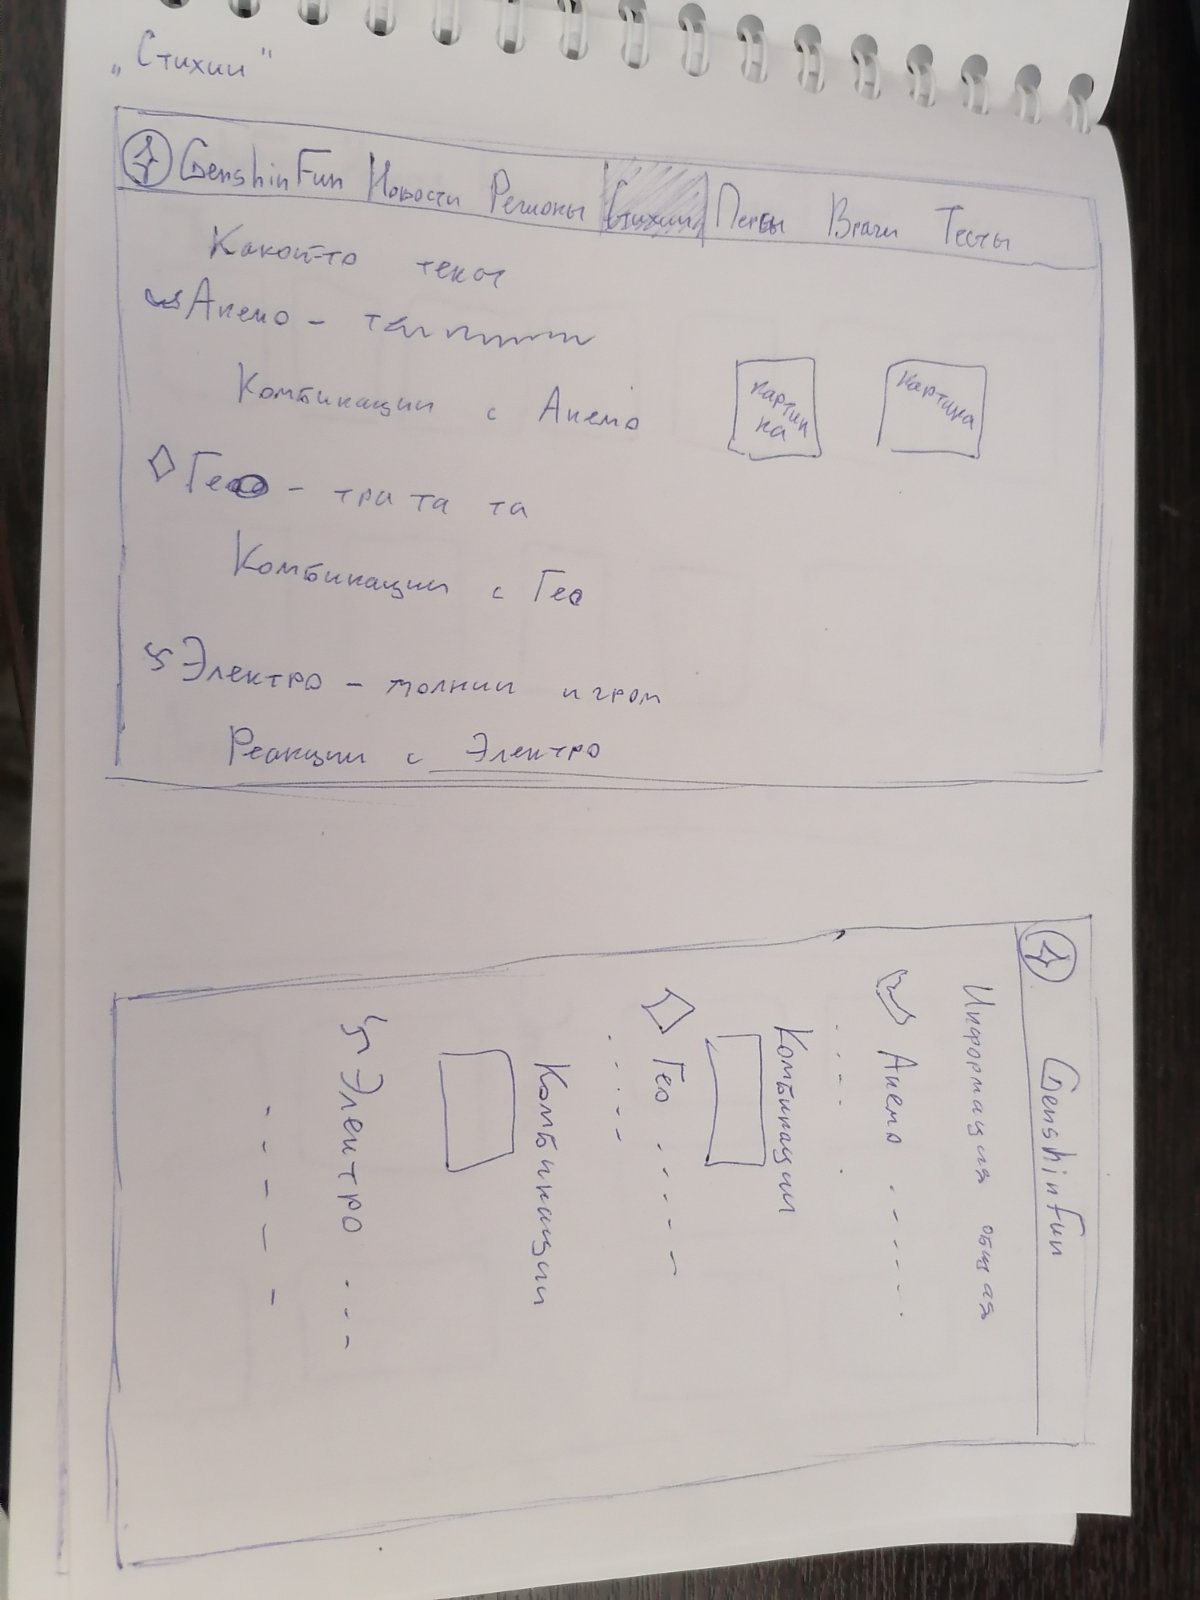 „Стихии"
GenshinFun Новости Регионы Стихии Персы Враги Тесты
Какой-то текст
Анемо -
Комбинации с Анемо
картин
ка
картинка
Гео - тра та та
Комбинации с Гео
Электро - молнии и гром
Реакции с Электро
GenshinFun
Информация общая
Анемо
Комбинации
Гео
Комбинации
Электро